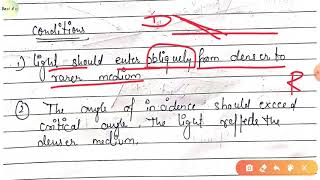 D
Conditions
1) light should enter obliquely from denser to
rarer medium
R
② The angle of incidence should exceed
critical angle. The light reflects the
denser medium.